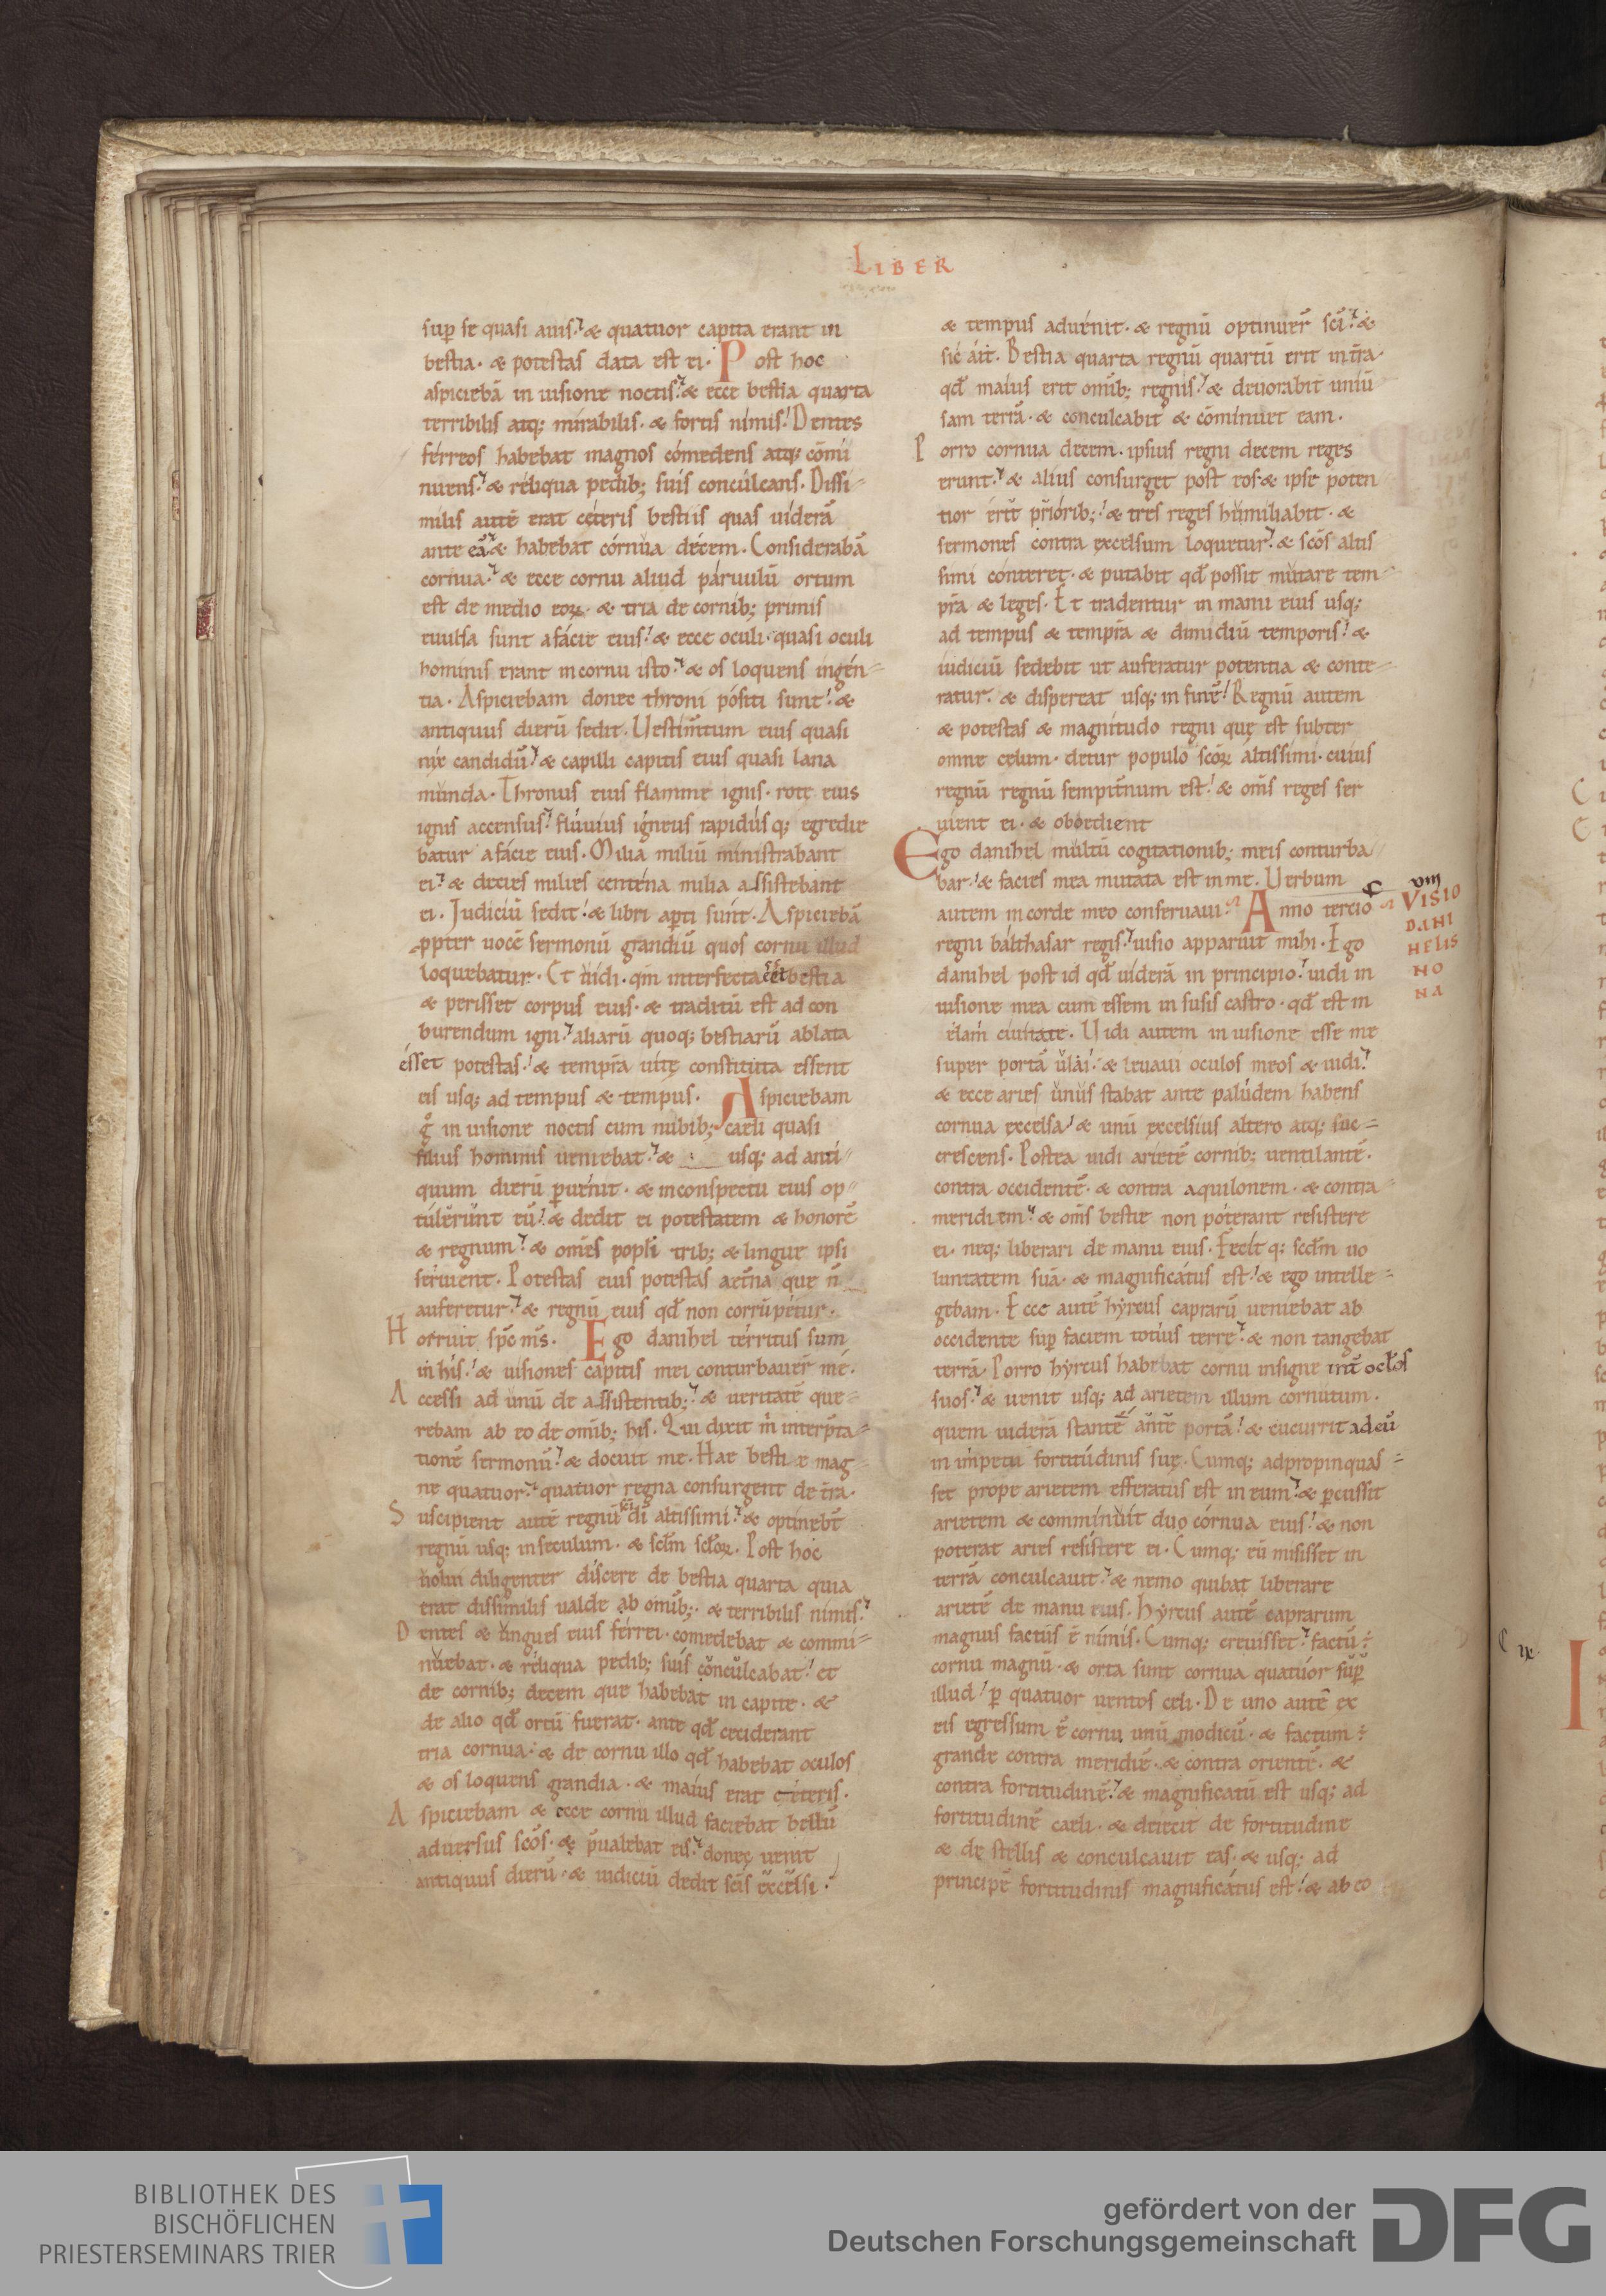 LIBER
sup̄ se quasi auis. & quatuor capita erant in
bestia. & potestas data est ei. Post hoc
aspiciebā in uisione noctis. & ecce bestia quarta
terribilis atq; mirabilis. & fortis nimis. Dentes
férreos habebat magnos cómedens atq; cōmi
nuens. & réliqua pedib; suis concúlcans. Dissi-
milis autē erat cęteris bestiis quas uiderā
ante eā. & habebat córnua décem. Considerabā
cornua. & ecce cornu aliud páruulū ortum
est de medio eoꝝ. & tria de cornib; primis
euulsa sunt a fácie eius. & ecce oculi quasi oculi
hominis erant in cornu isto. & os loquens ingén-
tia. Aspiciebam donec throni pósiti sunt. &
antiquus dierū sedit. Uestim̄tum eius quasi
nix candidū. & capilli capitis eius quasi lana
munda. Thronus eius flamme ignis. rote eius
ignis accensus. flúuius ígneus rapidúsq; egredie
batur a fácie eius. Milia miliū ministrabant
ei. & decies milies centéna milia assistebant
ei. Judiciū sedit. & libri apti sunt. Aspiciebā
ꝓpter uocē sermonū grandiū quos cornu illud
loquebatur. Et uidi. qm̄ interfecta eēt bestia
& perisset corpus eius. & traditū est ad con
burendum igni. aliarū quoq; bestiarū ablata
ésset potestas. & temp̄ra uitę constituta essent
eis usq; ad tempus & tempus. Aspiciebam
g̊ in uisione noctis cum nubib; caeli quasi
filius hominis ueniebat. & usq; ad anti-
quum dierū ꝑuénit. & in conspectu eius op-
tulerunt eū. & dedit ei potestatem & honorē
& regnum. & omēs popli trib; & lingue ipsi
seruient. Potestas eius potestas aet̄na que n̄
auferetur. & regnū eius qd̄ non corrūpétur.
Horruit sp̄c m̄s. Ego danihel térritus sum
in his. & uisiones capitis mei conturbauer̄ me.
Accessi ad unū de assistentib; & ueritatē que-
rebam ab eo de omīb; his. Qui dixit m̄ interp̄ta-
tionē sermonū. & docuit me. Hae bestiæ mag-
ne quatuor. quatuor regna consurgent de t̄ra.
Suscipient autē regnū sc̄i dī altissimi. & optinebt̄
regnū usq; in seculum. & sc̄lm sc̄loꝝ. Post hoc
uolui diligenter díscere de bestia quarta quia
erat dissimilis ualde ab omīb;. & terribilis nimis.
Dentes & ungues eius férrei. comedebat & commi-
nuebat. & réliqua pedib; suis conculcabat. et
de cornib; decem que habebat in capite. &
de alio qd̄ ortū fuerat. ante qd̄ ceciderant
tria cornua. & de cornu illo qd̄ habebat oculos
& os loquens grandia. & maius erat céteris.
Aspiciebam & ecce cornu illud faciebat bellū
aduersus sc̄os. & p̄ualebat eis. donec uenit
antiquus dierū. & iudiciū dedit sc̄is excelsi.
& tempus aduénit. & regnū optinuer̄ sc̄i. &
sic áit. Bestia quarta regnū quartū erit in t̄ra.
qd̄ maius erit omīb; regnis. & deuorabit uniū
sam terrā. & conculcabit & cōminuet eam.
Porro cornua decem. ipsius regni decem reges
erunt. & alius consurget post eos. & ipse poten
tior erit priórib;. & tres reges humiliabit. &
sermones contra excelsum loquetur. & sc̄os altis
simi cónteret. & putabit qd̄ possit mutare tem-
p̄ra & leges. Et tradentur in manu eius usq;
ad tempus & temp̄ra & dimidiū temporis. &
iudiciū sedebit ut auferatur potentia & conte-
ratur. & dispereat usq; in finē. Regnū autem
& potestas & magnitudo regni quę est subter
omne celum. detur populo sc̄oꝝ altissimi. cuius
regnū regnū sempit̄num est. & om̄s reges ser
uient ei. & obędient
Ego danihel multū cogitationib; meis conturba
bar. & facies mea mutata est in me. Uerbum
autem in corde meo conseruaui. Anno tercio
C VIII
VISIO
DANI
HELIS
NO
NA
regni bálthasar regis. uisio apparuit mihi. Ego
danihel post id qd̄ uiderā in principio. uidi in
uisione mea cum essem in susis castro. qd̄ est in
elam ciuitate. Uidi autem in uisione esse me
super portā ulái. & leuaui oculos meos & uidi.
& ecce aries unus stabat ante palúdem habens
cornua excelsa. & unū excelsius altero atq; suc-
crescens. Postea uidi arietē cornib; uentilantē.
contra occidentē. & contra aquilonem. & contra
meridiem. & om̄s bestie non póterant resistere
ei. neq; liberari de manu eius. Fecitq; scd̄m uo
luntatem suā. & magnificátus est. & ego intelle-
gebam. Ecce autē hyrcus caprarū ueniebat ab
occidente sup̄ faciem totius terre. & non tangebat
terrā. Porro hyrcus habebat cornu insigne int̄ oc̄los
suos. & uenit usq; ad arietem illum cornutum.
quem uiderā stantē ante portā. & cucurrit ad eū
in impetu fortitúdinis suę. Cumq; adpropinquas-
set prope arietem efferatus est in eum. & ꝑcussit
arietem & comminuit duo córnua eius. & non
poterat aries resistere ei. Cumq; eū misisset in
terrā conculcauit. & nemo quibat liberare
arietē de manu eius. Hyrcus autē caprarum
magnus factus ē nimis. Cumq; creuisset. factū ÷
cornu magnū. & orta sunt cornua quatuor sup̄
illud. ꝑ quatuor uentos celi. De uno autē ex
eis egressum ē cornu unū modicū. & factum ÷
grande contra meridiē. & contra orientē. &
contra fortitudinē. & magnificatū est usq; ad
fortitudinē caeli. & deiecit de fortitudine
& de stellis & conculcauit eas. & usq; ad
principē fortitudinis magnificátus est. & ab eo
C IX
I
BIBLIOTHEK DES
BISCHÖFLICHEN
PRIESTERSEMINARS TRIER
gefördert von der
Deutschen Forschungsgemeinschaft
DFG